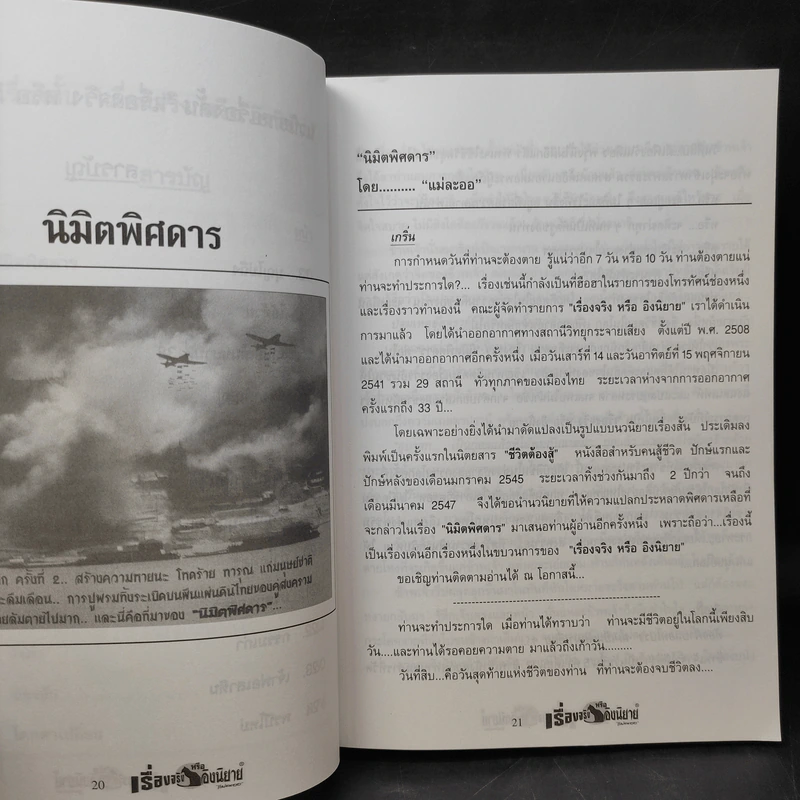 นิมิตพิศดาร
ครั้งที่ 2.. สร้างความหายนะ โหดร้าย ทารุณ แก่มนุษย์ชาติ
ะลืมเลือน.. การปูพรมทิ้งระเบิดบนผืนแผ่นดินไทยของคู่สงคราม
ล้มตายไปมาก.. และนี่คือที่มาของ "นิมิตพิศดาร"...
20
เรื่องจริง หรือ อิงนิยาย
"นิมิตพิศดาร"
โดย.......... "แม่ละออ"
เกริ่น
การกำหนดวันที่ท่านจะต้องตาย รู้แน่ว่าอีก 7 วัน หรือ 10 วัน ท่านต้องตายแน่
ท่านจะทำประการใด?... เรื่องเช่นนี้กำลังเป็นที่ฮือฮาในรายการของโทรทัศน์ช่องหนึ่ง
และเรื่องราวทำนองนี้ คณะผู้จัดทำรายการ "เรื่องจริง หรือ อิงนิยาย" เราได้ดำเนิน
การมาแล้ว โดยได้นำออกอากาศทางสถานีวิทยุกระจายเสียง ตั้งแต่ปี พ.ศ. 2508
และได้นำมาออกอากาศอีกครั้งหนึ่ง เมื่อวันเสาร์ที่ 14 และวันอาทิตย์ที่ 15 พฤศจิกายน
2541 รวม 29 สถานี ทั่วทุกภาคของเมืองไทย ระยะเวลาห่างจากการออกอากาศ
ครั้งแรกถึง 33 ปี...
โดยเฉพาะอย่างยิ่งได้นำมาดัดแปลงเป็นรูปแบบนวนิยายเรื่องสั้น ประเดิมลง
พิมพ์เป็นครั้งแรกในนิตยสาร "ชีวิตต้องสู้" หนังสือสำหรับคนสู้ชีวิต ปักษ์แรกและ
ปักษ์หลังของเดือนมกราคม 2545 ระยะเวลาทิ้งช่วงกันมาถึง 2 ปีกว่า จนถึง
เดือนมีนาคม 2547 จึงได้ขอนำนวนิยายที่ให้ความแปลกประหลาดพิศดารเหลือที่
จะกล่าวในเรื่อง "นิมิตพิศดาร" มาเสนอท่านผู้อ่านอีกครั้งหนึ่ง เพราะถือว่า...เรื่องนี้
เป็นเรื่องเด่นอีกเรื่องหนึ่งในขบวนการของ "เรื่องจริง หรือ อิงนิยาย"
ขอเชิญท่านติดตามอ่านได้ ณ โอกาสนี้...
ท่านจะทำประการใด เมื่อท่านได้ทราบว่า ท่านจะมีชีวิตอยู่ในโลกนี้เพียงสิบ
วัน....และท่านได้รอคอยความตาย มาแล้วถึงเก้าวัน........
วันที่สิบ...คือวันสุดท้ายแห่งชีวิตของท่าน ที่ท่านจะต้องจบชีวิตลง....
21
เรื่องจริง หรือ อิงนิยาย